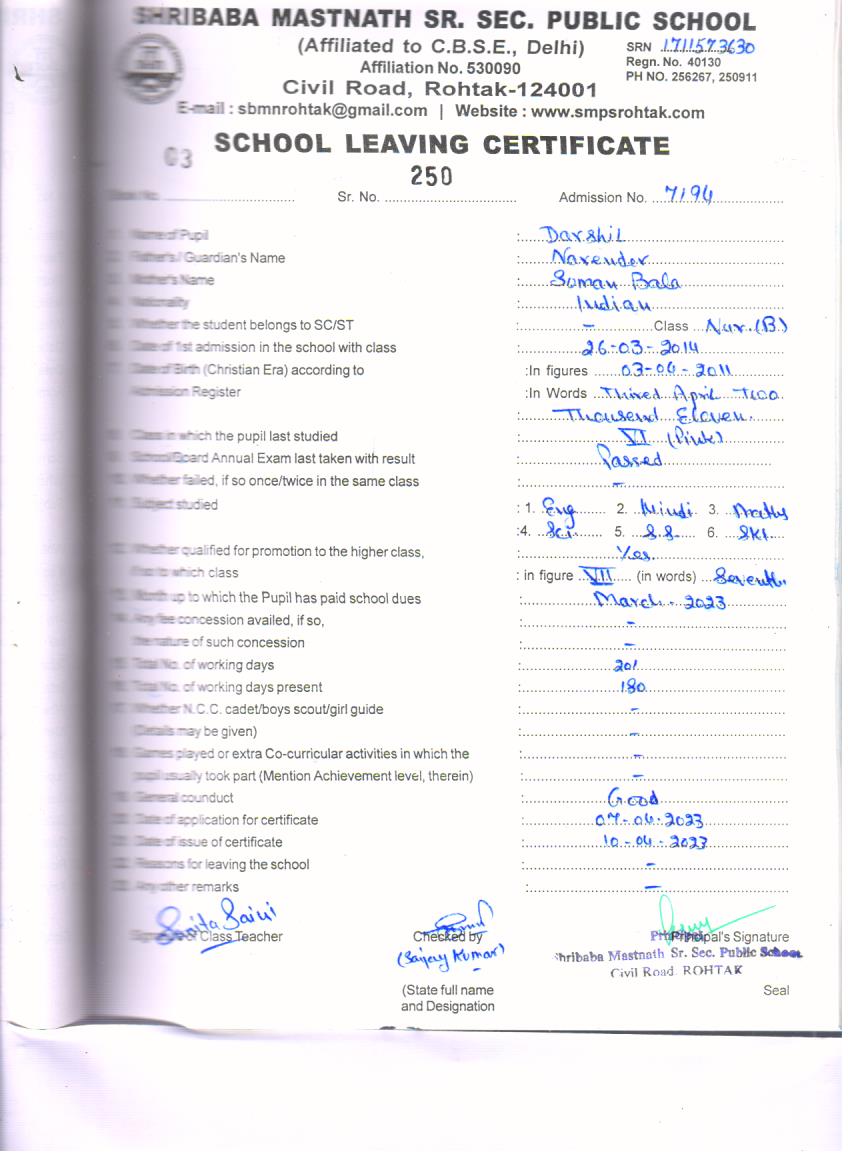 SHRIBABA MASTNATH SR. SEC. PUBLIC SCHOOL
(Affiliated to C.B.S.E., Delhi) SRN 1711573630
Affiliation No. 530090 Regn. No. 40130
Civil Road, Rohtak-124001 PH NO. 256267, 250911
E-mail : sbmnrohtak@gmail.com | Website : www.smpsrohtak.com
SCHOOL LEAVING CERTIFICATE
03 250
Sr. No. Admission No. 7194
Name of Pupil : Darshil
Father's / Guardian's Name : Narender
Mother's Name : Suman Bala
Nationality : Indian
Whether the student belongs to SC/ST : – Class Nur.(B)
Date of 1st admission in the school with class : 26-03-2014
Date of Birth (Christian Era) according to :In figures 03-04-2011
Admission Register :In Words Thired April Two
: Thousend Eleven.
Class in which the pupil last studied : VI (Pink)
School/Board Annual Exam last taken with result : Passed
Whether failed, if so once/twice in the same class : –
Subject studied : 1. Eng 2. Hindi 3. Maths
:4. Sci 5. S.S. 6. SKt.
Whether qualified for promotion to the higher class, : Yes
if so to which class : in figure VII (in words) Seventh
Month up to which the Pupil has paid school dues : March - 2023
Any fee concession availed, if so, : –
the nature of such concession : –
Total No. of working days : 201
Total No. of working days present : 180
Whether N.C.C. cadet/boys scout/girl guide : –
(Details may be given) : –
Games played or extra Co-curricular activities in which the : –
pupil usually took part (Mention Achievement level, therein) : –
General counduct : Good
Date of application for certificate : 07-04-2023
Date of issue of certificate : 10-04-2023
Reasons for leaving the school : –
Any other remarks : –
Sarita Saini
Class Teacher Checked by Principal's Signature
(Sanjay Kumar) Shribaba Mastnath Sr. Sec. Public School
Civil Road, ROHTAK
(State full name Seal
and Designation